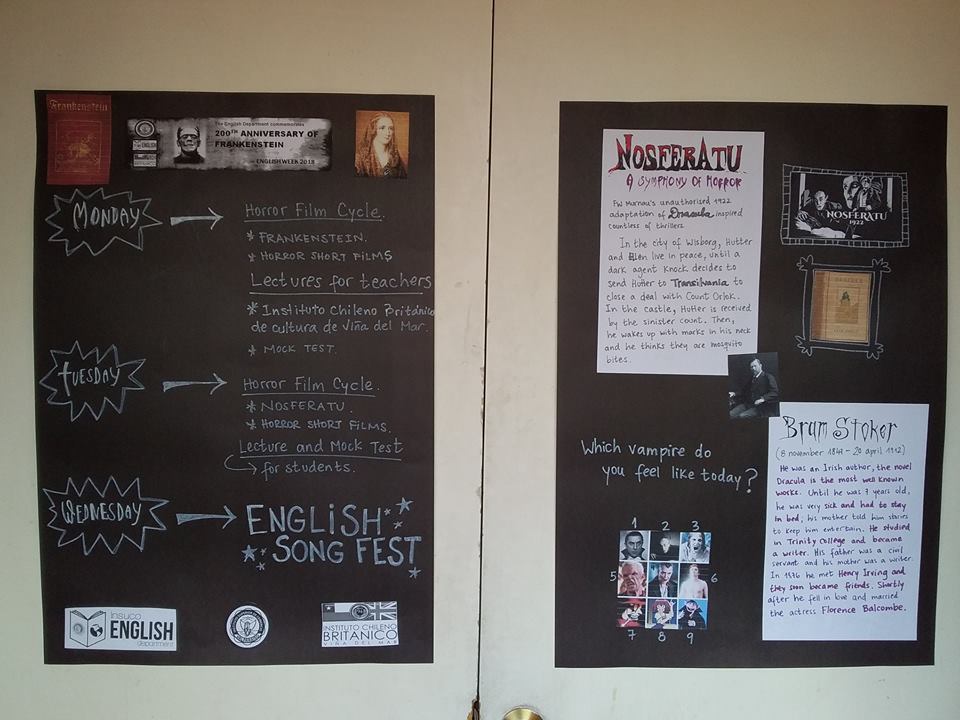 Frankenstein
The English Department commemorates
200TH ANNIVERSARY OF
FRANKENSTEIN
ENGLISH WEEK 2018
MONDAY
Horror Film Cycle.
* FRANKENSTEIN.
* HORROR SHORT FILMS
Lectures for teachers
* Instituto Chileno Británico
de cultura de Viña del Mar.
* MOCK TEST.
TUESDAY
Horror Film Cycle.
* NOSFERATU.
* HORROR SHORT FILMS.
Lecture and Mock Test
for students.
WEDNESDAY
ENGLISH
SONG FEST
insuco
ENGLISH
department
INSTITUTO CHILENO
BRITANICO
VIÑA DEL MAR
NOSFERATU
A SYMPHONY OF HORROR
FW Murnau's unauthorised 1922
adaptation of Dracula inspired
countless of thrillers
In the city of Wisborg, Hutter
and Ellen live in peace, until a
dark agent Knock decides to
send Hutter to Transilvania to
close a deal with Count Orlok.
In the Castle, Hutter is received
by the sinister count. Then,
he wakes up with marks in his neck
and he thinks they are mosquito
bites.
NOSFERATU
1922
DRACULA
Which vampire do
you feel like today?
1 2 3
5 6
7 8 9
Bram Stoker
(8 november 1847 - 20 april 1912)
He was an Irish author, the novel
Dracula is the most well known
works. Until he was 7 years old,
he was very sick and had to stay
in bed, his mother told him stories
to keep him entertain. He studied
in Trinity College and became
a writer. His father was a civil
servant and his mother was a writer.
In 1876 he met Henry Irving and
they soon became friends. Shortly
after he fell in love and married
the actress Florence Balcombe.